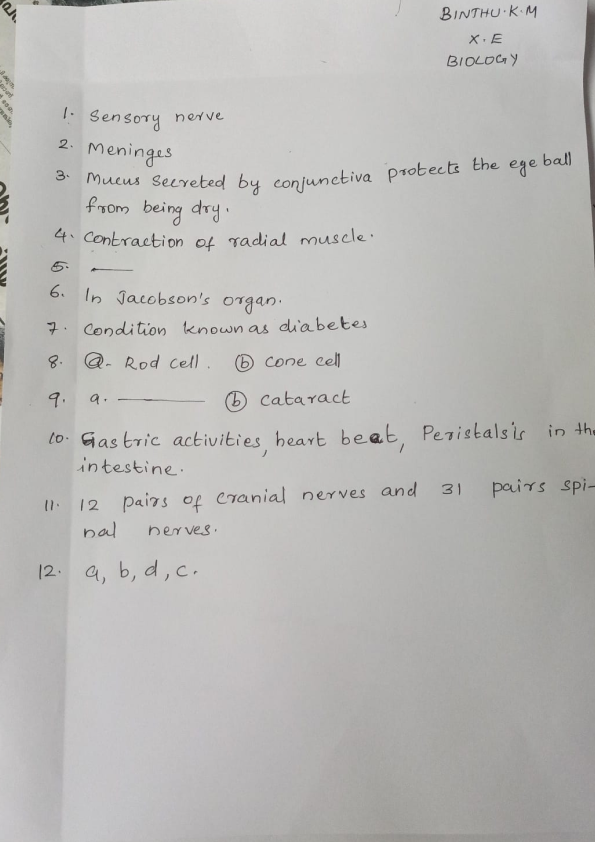 BINTHU.K.M
X.E
BIOLOGY
1. Sensory nerve
2. Meninges
3. Mucus secreted by conjunctiva protects the eye ball
from being dry.
4. Contraction of radial muscle.
5. —
6. In Jacobson's organ.
7. Condition known as diabetes
8. ⓐ- Rod cell. ⓑ cone cell
9. a. — ⓑ cataract
10. Gastric activities, heart beat, Peristalsis in the
intestine.
11. 12 pairs of cranial nerves and 31 pairs spi-
nal nerves.
12. a, b, d, c.